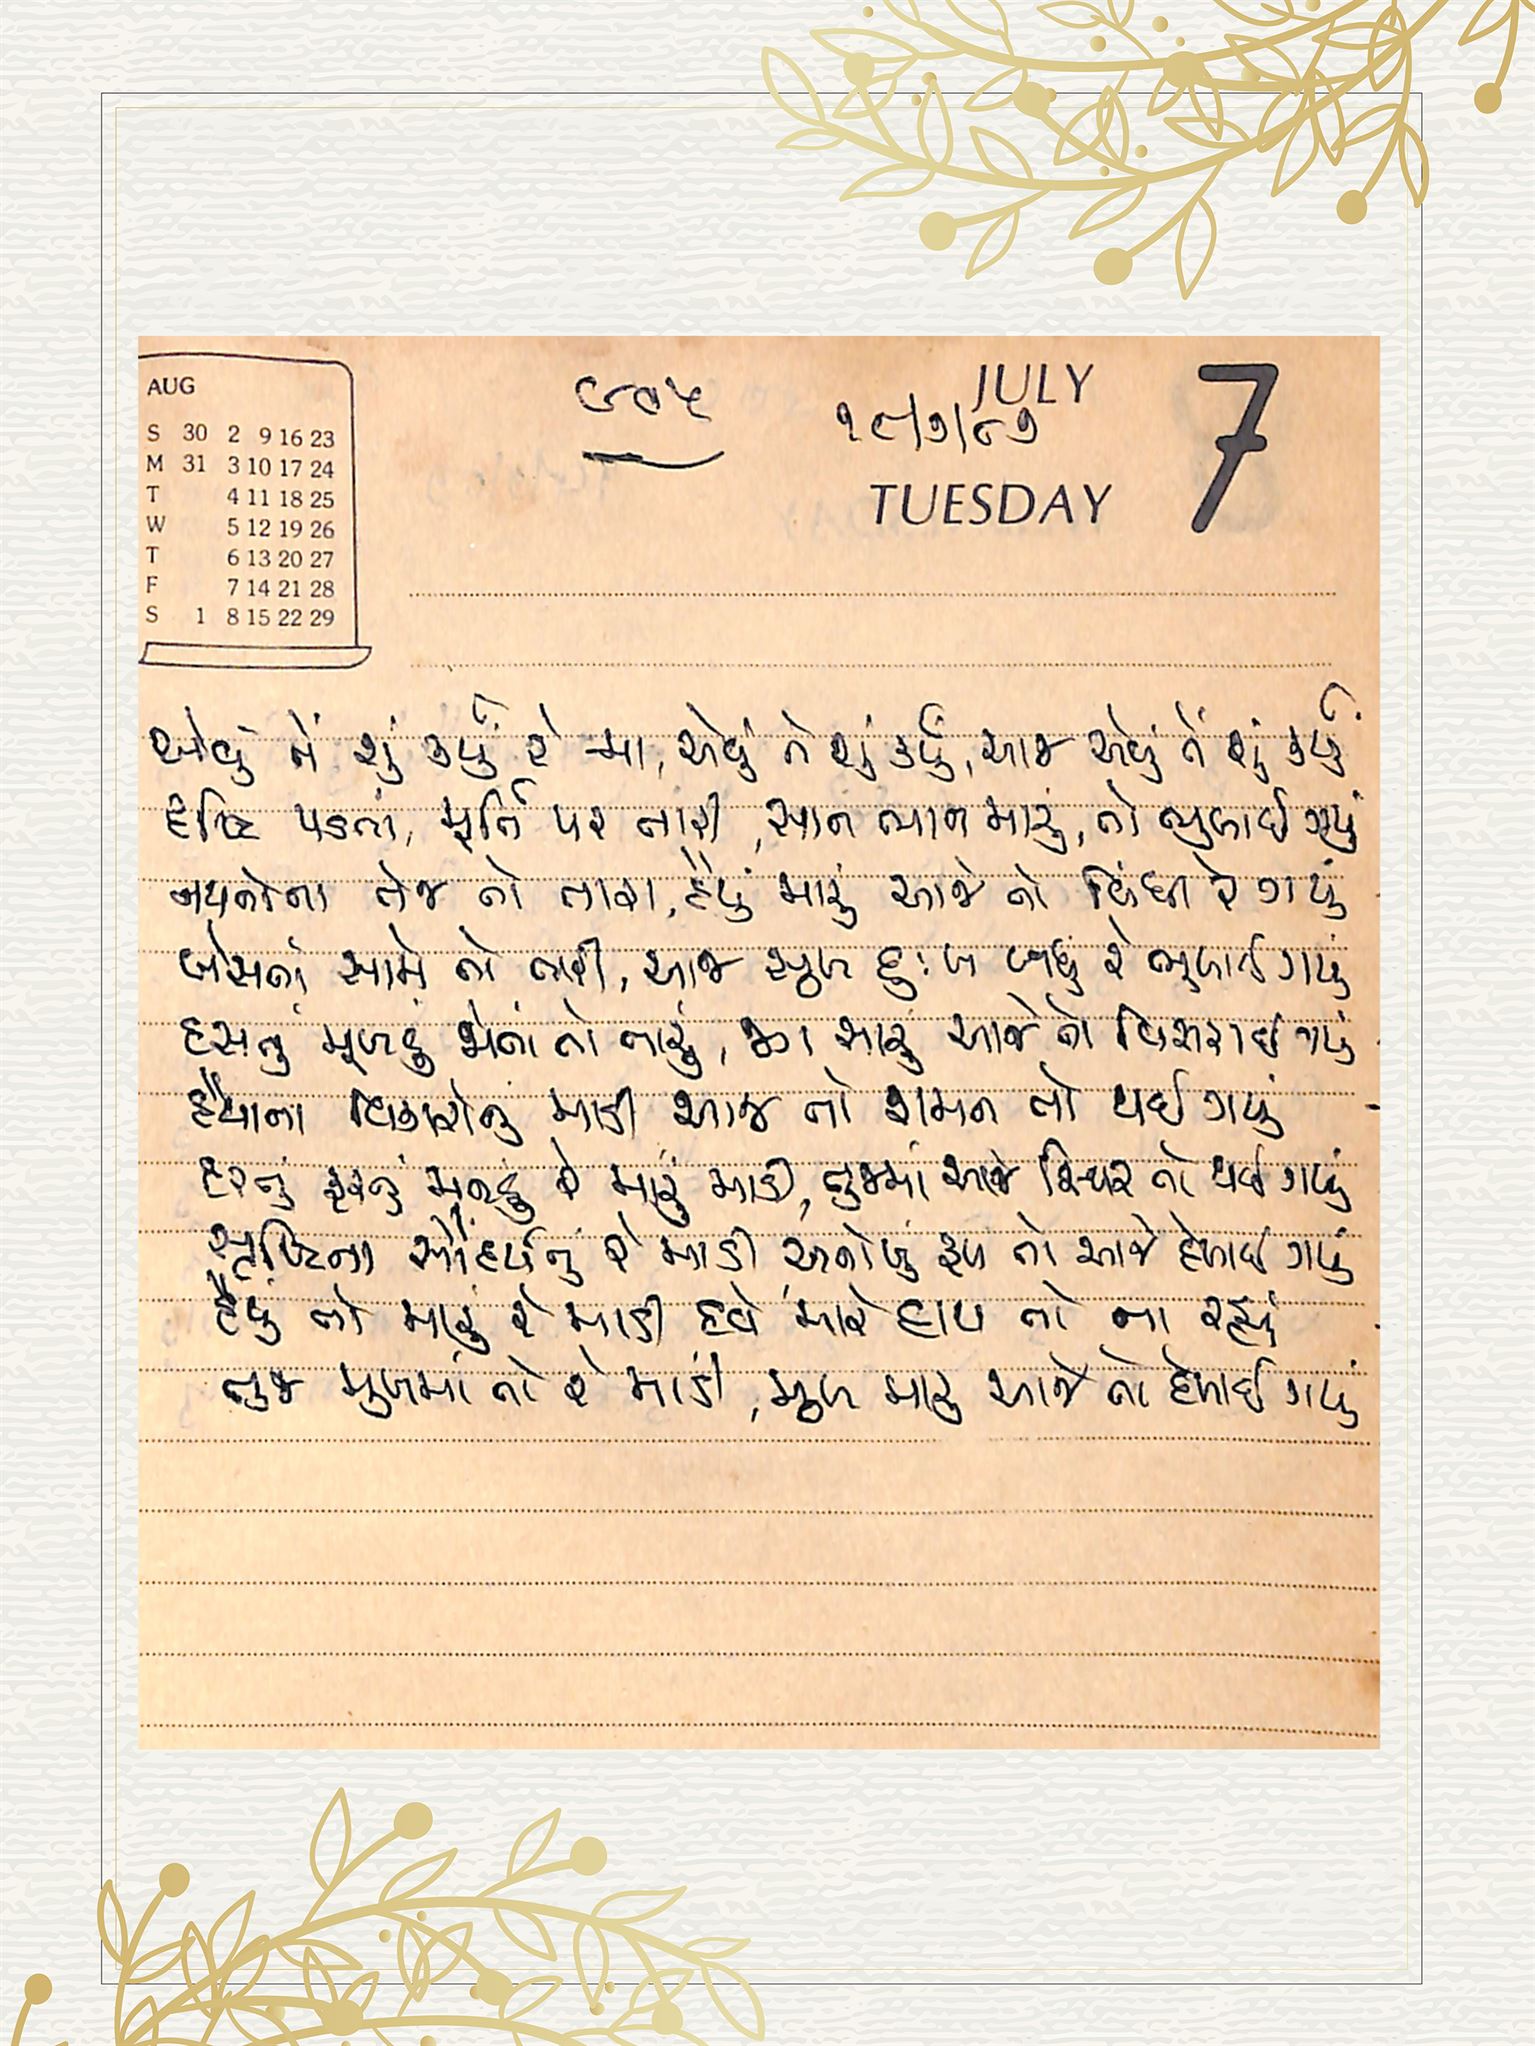 AUG
S 30 2 9 16 23
M 31 3 10 17 24
T 4 11 18 25
W 5 12 19 26
T 6 13 20 27
F 7 14 21 28
S 1 8 15 22 29
JULY 7
૧૯/૭/૮૭
TUESDAY
એવું તેં શું કર્યું રે મા, એવું તે શું કર્યું, આજ એવું તેં શું કર્યું
દૃષ્ટિ પડતાં, મૂર્તિ પર તારી, સાન ભાન મારું, તો ભુલાઈ ગયું
નયનોના તેજ તો તારા, હૈયું મારું આજે તો વિંધી રે ગયું
બેસતાં સામે તો તારી, આજ સુખ દુઃખ બધું રે ભુલાઈ ગયું
હસતું મૂખડું જોતાં તો તારું, મારું આજે તો વિસરાઈ ગયું
હૈયાના વિકારોનું માડી આજ તો શમન તો થઈ ગયું
ફરતું મનડું રે મારું માડી, તુજમાં આજે સ્થિર તો થઈ ગયું
સૃષ્ટિના સૌંદર્યનું રે માડી અનોખું રૂપ તો આજે દેખાઈ ગયું
હૈયું તો મારું રે માડી હવે મારે હાથ તો ના રહ્યું
તુજ મુખમાં તો રે માડી, મુખ મારું આજે તો દેખાઈ ગયું